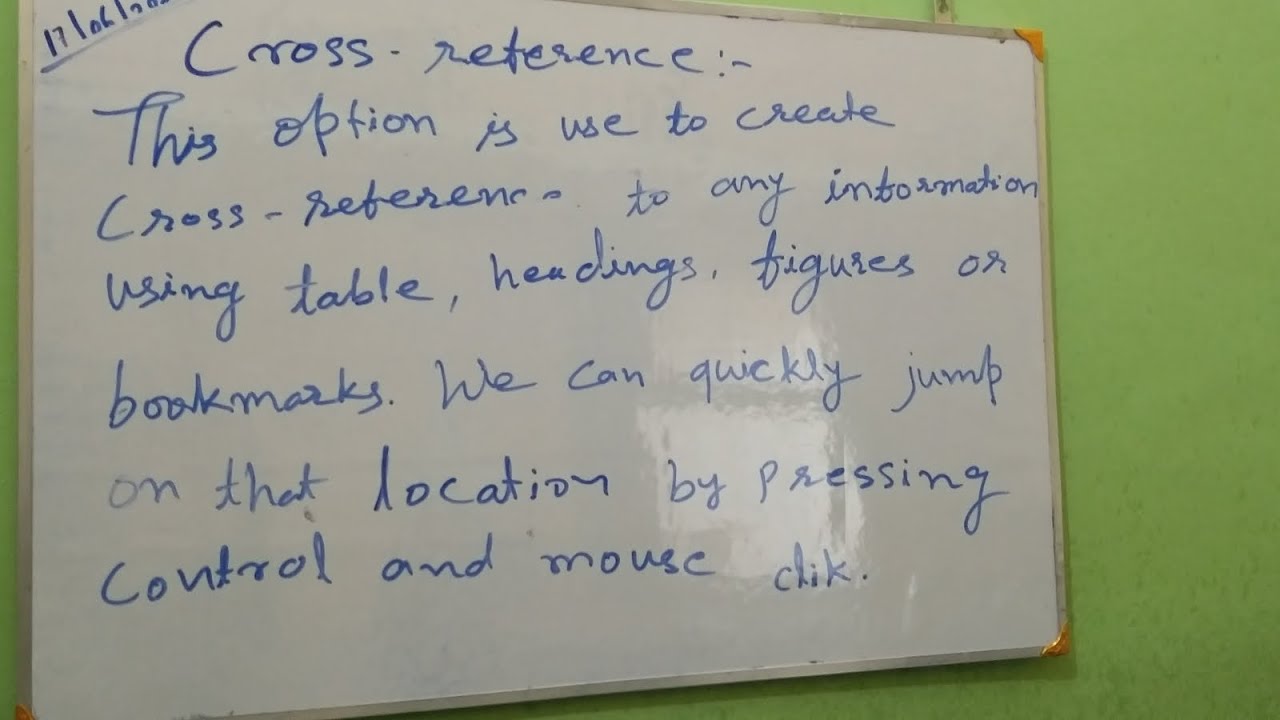 17/06/
Cross-reference:-
This option is use to create
Cross-referenc to any information
using table, headings, figures or
bookmarks. We can quickly jump
on that location by pressing
Control and mouse clik.